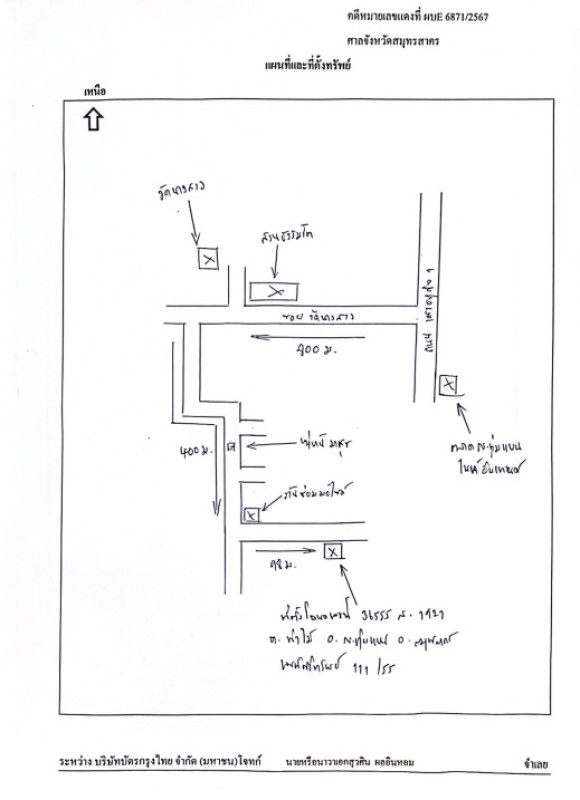 คดีหมายเลขแดงที่ ผบE 6871/2567
ศาลจังหวัดสมุทรสาคร
แผนที่และที่ตั้งทรัพย์
เหนือ
วัดนางสาว
สวนธรรมโต
ซอย วัดนางสาว
400 ม.
ถนน
400 ม.
ร้านซ่อมมอไซค์
ตลาด กระทุ่มแบน
98 ม.
ที่ตั้งโฉนดเลขที่ 36555 ส. 1421
ต. ท่าไม้ อ. กระทุ่มแบน จ. สมุทรสาคร
111 /55
ระหว่าง บริษัทบัตรกรุงไทย จำกัด (มหาชน) โจทก์ นายหรือนาวาเอกสุวศิน ผลอินหอม จำเลย